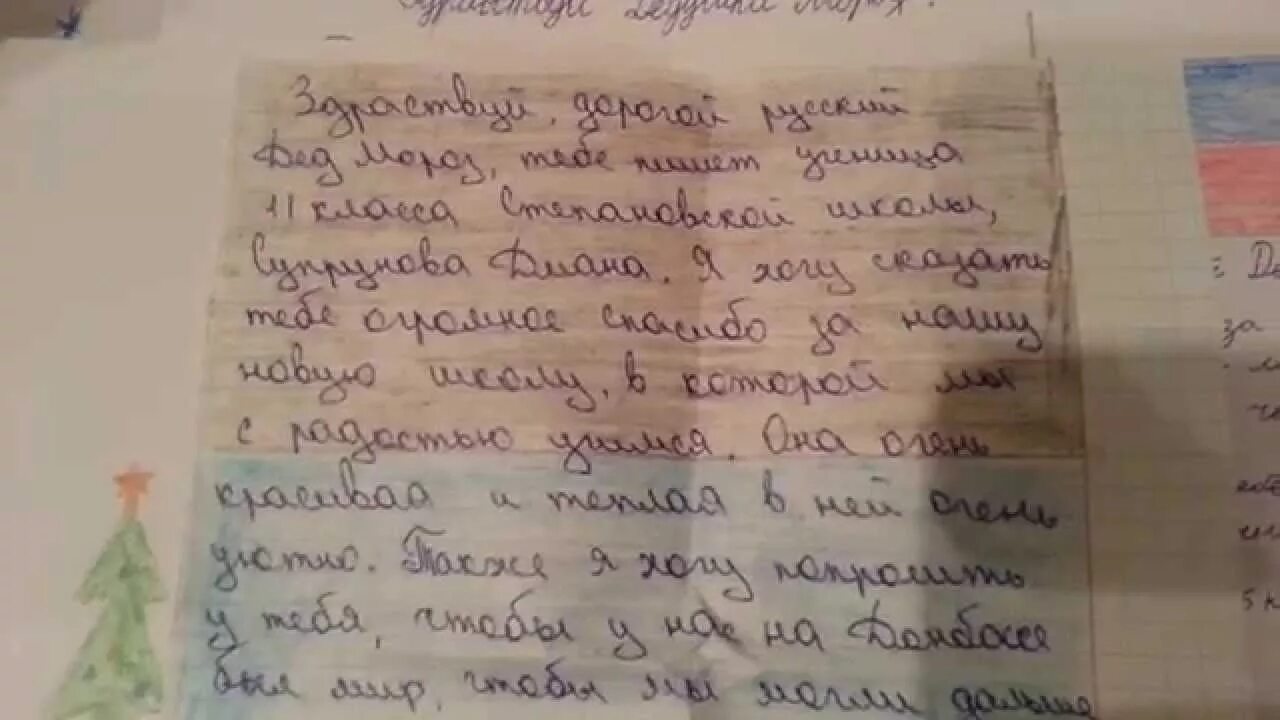 Здравствуй Дедушка Мороз!
Здраствуй, дорогой русский
Дед Мороз, тебе пишет ученица
11 класса Степановской школы,
Супрунова Диана. Я хочу сказать
тебе огромное спасибо за нашу
новую школу, в которой мы
с радостью учимся. Она очень
красивая и теплая в ней очень
уютно. Также я хочу попросить
у тебя, чтобы у нас на Донбассе
был мир, чтобы мы могли дальше
за